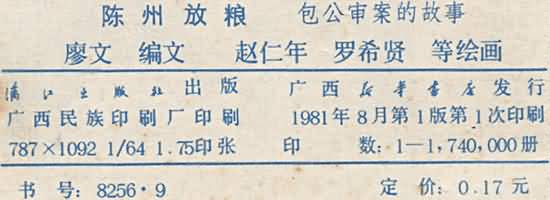 陈州放粮 包公审案的故事
廖文 编文 赵仁年 罗希贤 等绘画
漓江出版社出版 广西新华书店发行
广西民族印刷厂印刷 1981年8月第1版第1次印刷
787×1092 1/64 1.75印张 印 数：1—1,740,000册
书 号：8256·9 定 价：0.17元